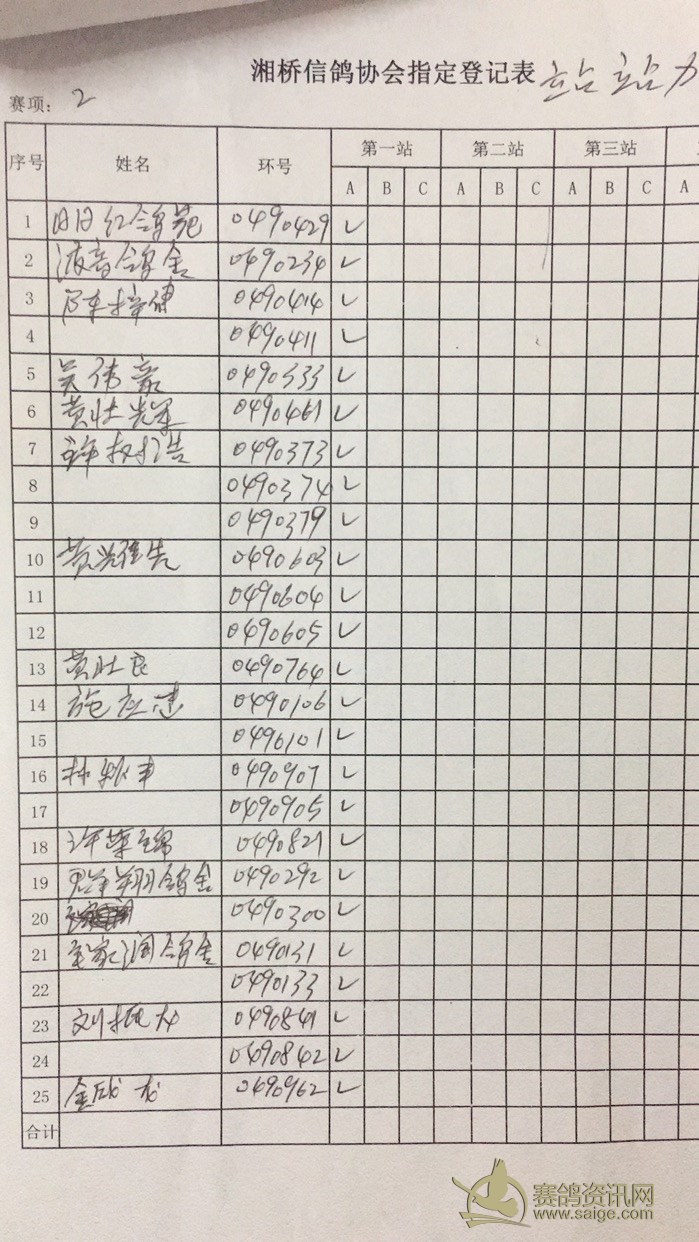 湘桥信鸽协会指定登记表 站站
赛项: 2
序号 姓名 环号 第一站 第二站 第三站
A B C A B C A B C A
1 日日红鸽苑 0490429 ✓
2 鸽舍 0490234 ✓
3 陈梓健 0490414 ✓
4 0490411 ✓
5 吴伟豪 0490333 ✓
6 黄壮 0490461 ✓
7 许 0490373 ✓
8 0490374 ✓
9 0490379 ✓
10 黄 0490603 ✓
11 0490604 ✓
12 0490605 ✓
13 黄壮良 0490764 ✓
14 施应忠 0490106 ✓
15 0490101 ✓
16 林 丰 0490907 ✓
17 0490905 ✓
18 许 0490821 ✓
19 翔鸽舍 0490292 ✓
20 0490300 ✓
21 家润鸽舍 0490131 ✓
22 0490133 ✓
23 刘振 0490841 ✓
24 0490842 ✓
25 金成龙 0490962 ✓
合计
赛鸽资讯网
www.saige.com